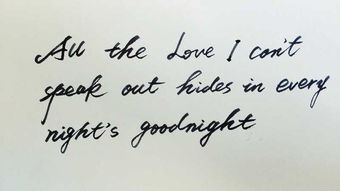 All the Love I can't
speak out hides in every
night's goodnight